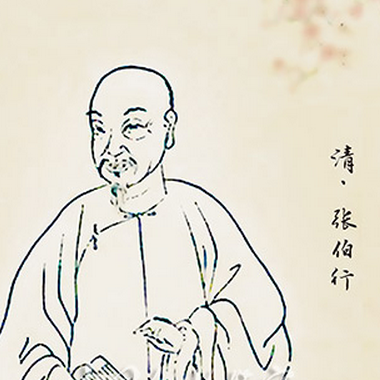 清、张伯行